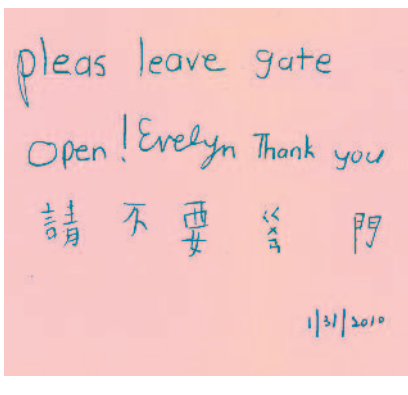 pleas leave gate
Open! Evelyn Thank you
請 不 要 ㄍㄨㄢ 門
1/31/2010